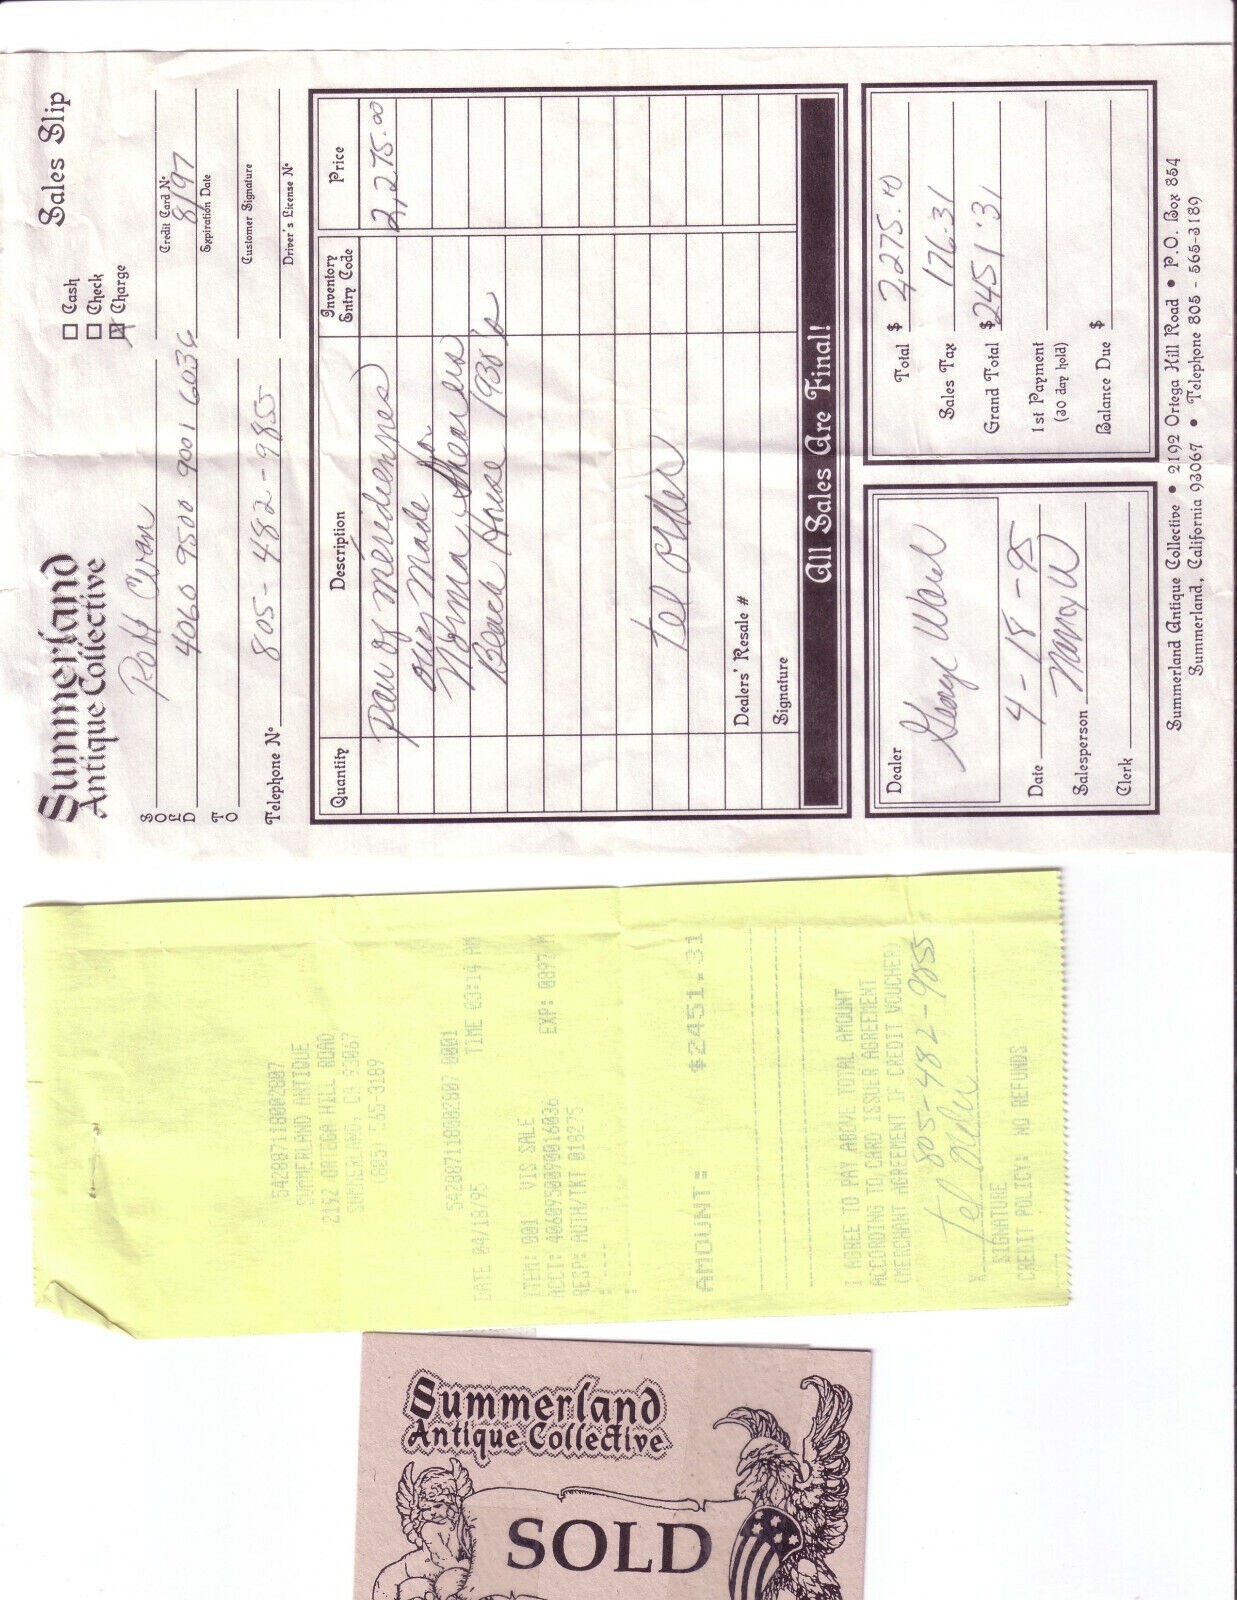 Summerland
Antique Collective
Sales Slip
Cash
Check
Charge
SOLD TO
4060 9500 9001 6036
Credit Card No
8/97
Expiration Date
Customer Signature
Telephone No 805-482-9855
Driver's License No
Quantity
Description
Inventory Entry Code
Price
pair of meridiennes
2,275.00
made for
Norma Shearers
Beach House 1930's
tel order
Dealers' Resale #
Signature
All Sales Are Final!
Dealer
George Ward
Date 4-18-95
Salesperson Nancy W
Clerk
Total $ 2,275.00
Sales Tax 176.31
Grand Total $ 2451.31
1st Payment
(30 day hold)
Balance Due $
Summerland Antique Collective • 2192 Ortega Hill Road • P.O. Box 854
Summerland, California 93067 • Telephone 805 - 565-3189
542887118002807
SUMMERLAND ANTIQUE
2192 ORTEGA HILL ROAD
SUMMERLAND, CA 93067
(805) 565-3189
542887118002807 0001
DATE 04/18/95 TIME 03:14 AM
ITEM: 001 VIS SALE
ACCT: 4060950090016036 EXP: 0897 M
RESP: AUTH/TKT 018275
AMOUNT: $2451.31
I AGREE TO PAY ABOVE TOTAL AMOUNT
ACCORDING TO CARD ISSUER AGREEMENT
(MERCHANT AGREEMENT IF CREDIT VOUCHER)
805-482-9855
X tel order
SIGNATURE
CREDIT POLICY: NO REFUNDS
Summerland
Antique Collective
SOLD